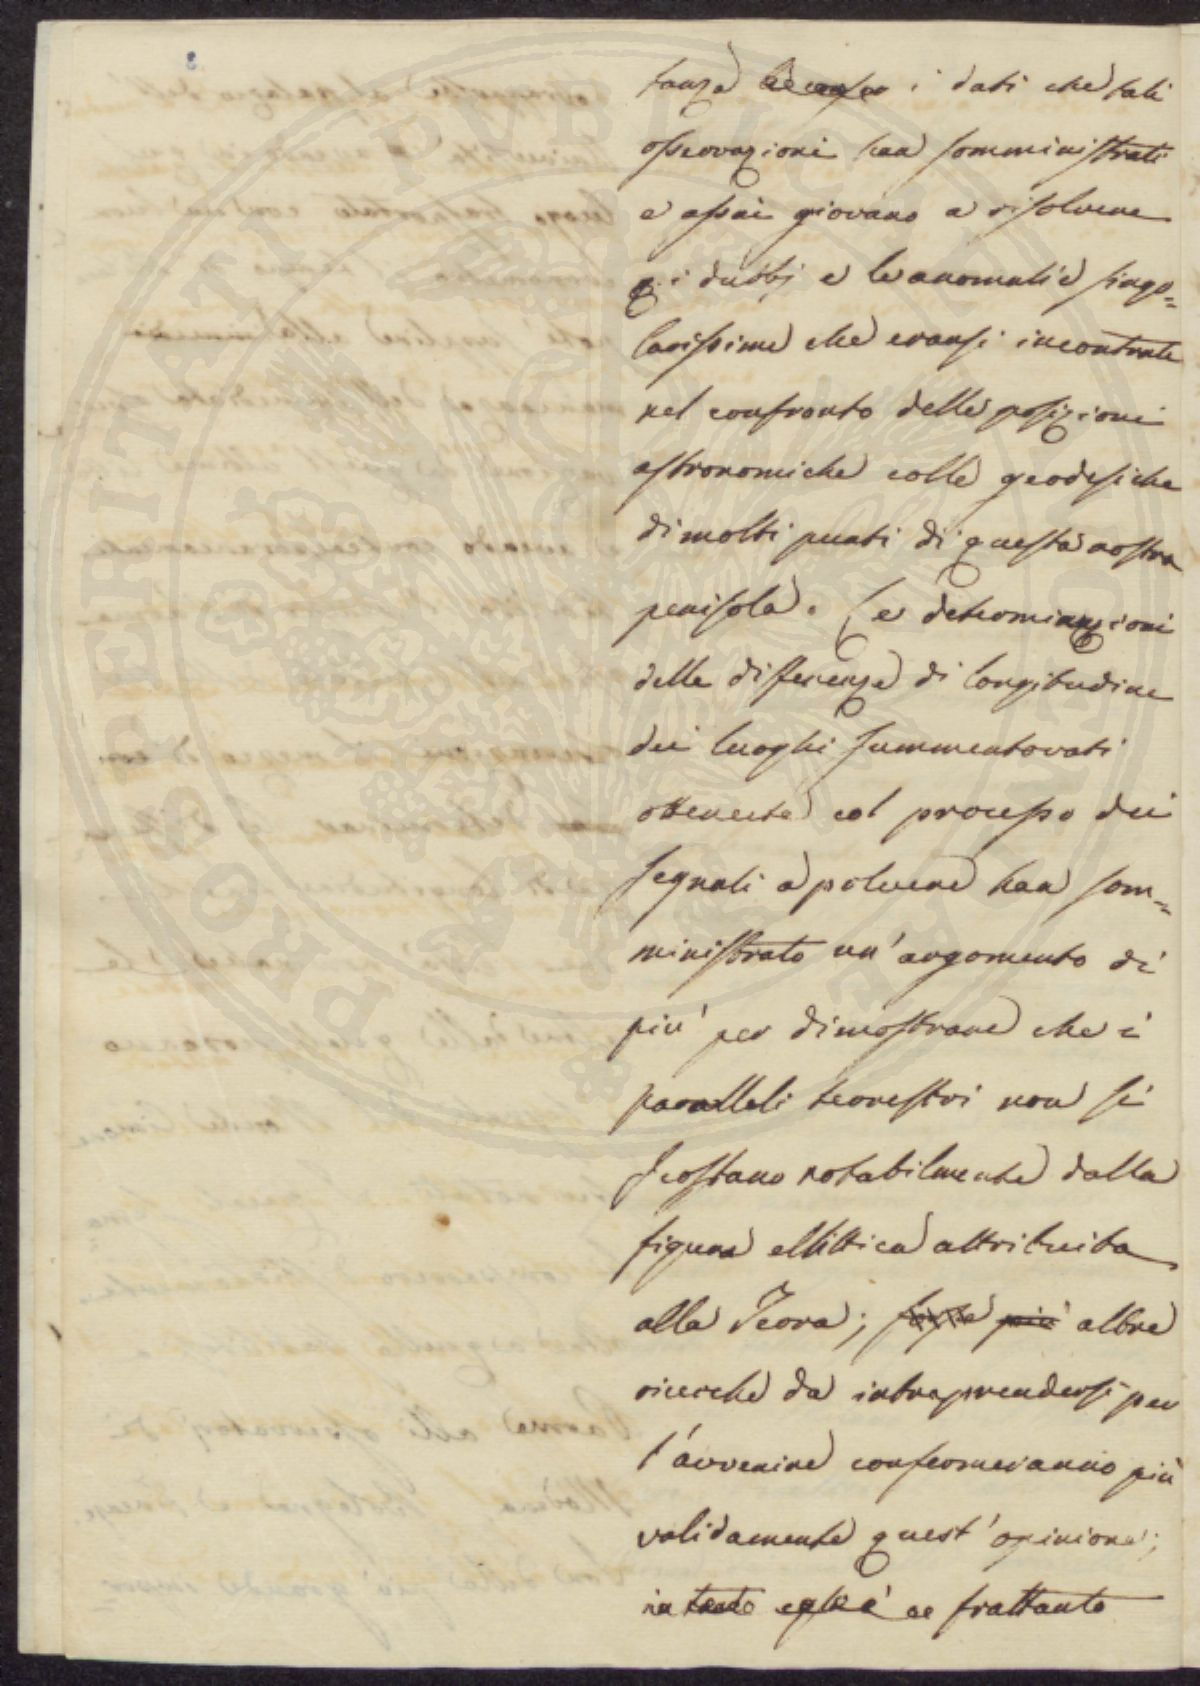 tanza i dati che tali
osservazioni han somministrati
e assai giovano a risolvere
i dubbj e le anomalie singo=
larissime che eransi incontrate
nel confronto delle posizioni
astronomiche colle geodesiche
di molti punti di questa nostra
penisola. Le determinazioni
delle differenze di longitudine
dei luoghi summentovati
ottenute col processo dei
segnali a polvere han som=
ministrato un' argomento di
più per dimostrare che i
paralleli terrestri non si
scostano notabilmente dalla
figura ellittica attribuita
alla Terra; forse più altre
ricerche da intraprendersi per
l'avvenire confermeranno più
validamente quest' opinione;
intanto egli è frattanto
PROSPERITATI PVBLICAE